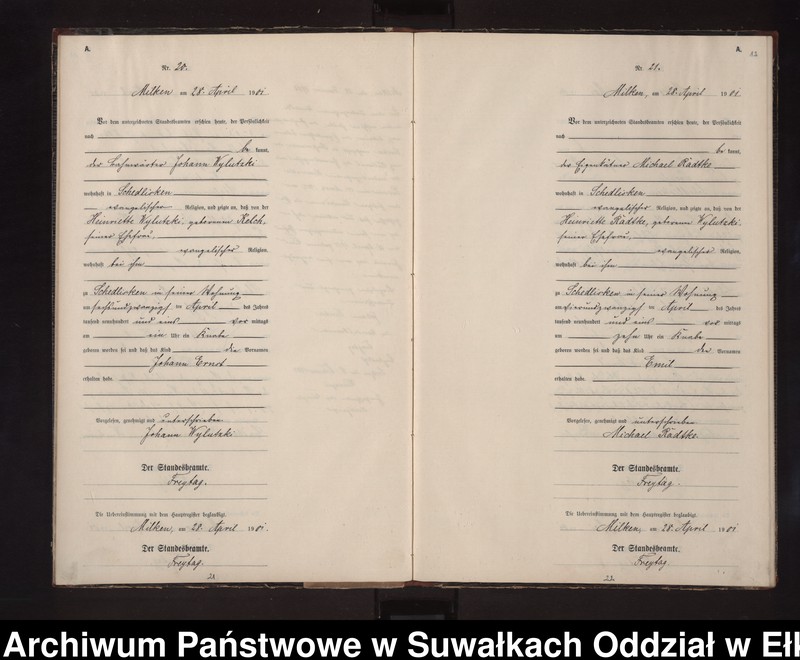 A.
Nr. 20.
Milken am 28. April 1901
Vor dem unterzeichneten Standesbeamten erschien heute, der Persönlichkeit
nach
be kannt,
der Bahnwärter Johann Wylutzki
wohnhaft in Schedlisken
evangelischer Religion, und zeigte an, daß von der
Heinriette Wylutzki, geborenen Kelch,
seiner Ehefrau,
evangelischer Religion,
wohnhaft bei ihm
zu Schedlisken in seiner Wohnung
am sechsundzwanzigsten April des Jahres
tausend neunhundert und eins vor mittags
um ein Uhr ein Knabe
geboren worden sei und daß das Kind die Vornamen
Johann Ernst
erhalten habe.
Vorgelesen, genehmigt und unterschrieben
Johann Wylutzki
Der Standesbeamte.
Freytag.
Die Uebereinstimmung mit dem Hauptregister beglaubigt.
Milken, am 28. April 1901.
Der Standesbeamte.
Freytag.
A.
Nr. 21.
Milken, am 28. April 1901
Vor dem unterzeichneten Standesbeamten erschien heute, der Persönlichkeit
nach
be kannt,
der Eigenkätner Michael Rädtke
wohnhaft in Schedlisken
evangelischer Religion, und zeigte an, daß von der
Heinriette Rädtke, geborenen Wylutzki,
seiner Ehefrau,
evangelischer Religion,
wohnhaft bei ihm
zu Schedlisken in seiner Wohnung
am vierundzwanzigsten April des Jahres
tausend neunhundert und eins vor mittags
um zehn Uhr ein Knabe
geboren worden sei und daß das Kind den Vornamen
Emil
erhalten habe.
Vorgelesen, genehmigt und unterschrieben
Michael Rädtke
Der Standesbeamte.
Freytag.
Die Uebereinstimmung mit dem Hauptregister beglaubigt.
Milken, am 28. April 1901
Der Standesbeamte.
Freytag.
Archiwum Państwowe w Suwałkach Oddział w Ełk